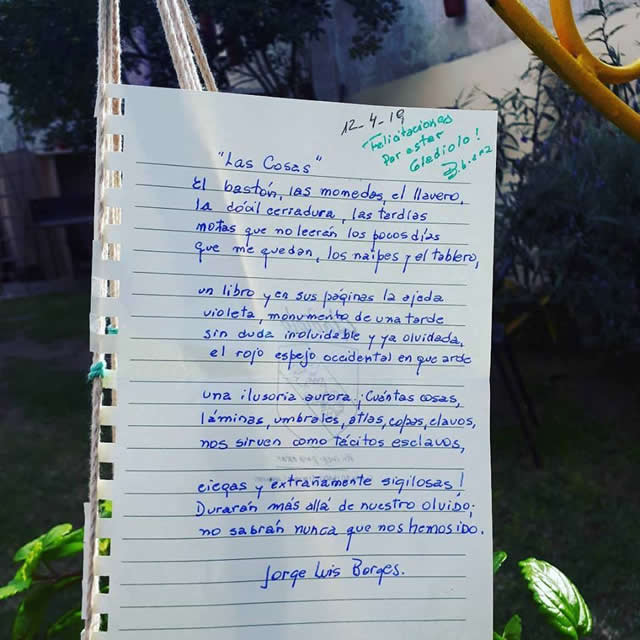 12-4-19
Felicitaciones
Por estar
Gladiolo!
"Las Cosas"
El bastón, las monedas, el llavero,
la dócil cerradura, las tardías
notas que no leerán los pocos días
que me quedan, los naipes y el tablero,
un libro y en sus páginas la ajada
violeta, monumento de una tarde
sin duda inolvidable y ya olvidada,
el rojo espejo occidental en que arde
una ilusoria aurora. ¡Cuántas cosas,
láminas, umbrales, atlas, copas, clavos,
nos sirven como tácitos esclavos,
ciegas y extrañamente sigilosas!
Durarán más allá de nuestro olvido;
no sabrán nunca que nos hemos ido.
Jorge Luis Borges.